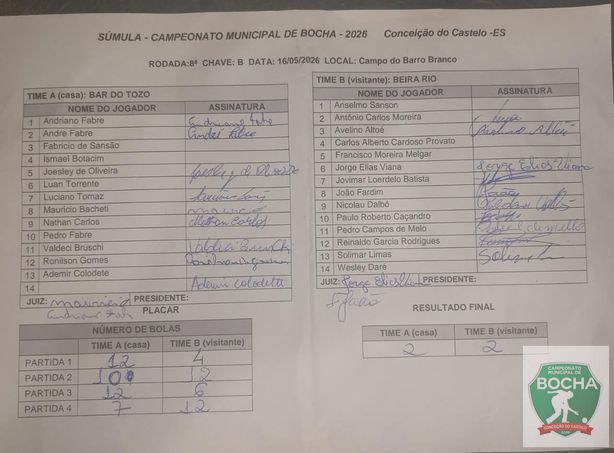 SÚMULA - CAMPEONATO MUNICIPAL DE BOCHA - 2026 Conceição do Castelo -ES
RODADA:8ª CHAVE: B DATA: 16/05/2026 LOCAL: Campo do Barro Branco
TIME A (casa): BAR DO TOZO
NOME DO JOGADOR ASSINATURA
1 Andriano Fabre Andriano Fabre
2 Andre Fabre André Fabre
3 Fabricio de Sansão
4 Ismael Botacim
5 Joesley de Oliveira Joesley de Oliveira
6 Luan Torrente
7 Luciano Tomaz
8 Mauricio Bacheti
9 Nathan Carlos Nathan Carlos
10 Pedro Fabre
11 Valdeci Bruschi Valdeci Bruschi
12 Ronilson Gomes
13 Ademir Colodete
14 Ademir Colodetti
JUIZ: PRESIDENTE:
TIME B (visitante): BEIRA RIO
NOME DO JOGADOR ASSINATURA
1 Anselmo Sanson
2 Antônio Carlos Moreira
3 Avelino Altoé
4 Carlos Alberto Cardoso Provato
5 Francisco Moreira Melgar
6 Jorge Elias Viana Jorge Elias Viana
7 Jovimar Loerdelo Batista
8 João Fardim João
9 Nicolau Dalbó
10 Paulo Roberto Caçandro
11 Pedro Campos de Melo
12 Reinaldo Garcia Rodrigues
13 Solimar Limas
14 Wesley Daré
JUIZ: Jorge Elias Viana PRESIDENTE:
PLACAR
NÚMERO DE BOLAS
TIME A (casa) TIME B (visitante)
PARTIDA 1 12 4
PARTIDA 2 10 12
PARTIDA 3 12 6
PARTIDA 4 7 12
RESULTADO FINAL
TIME A (casa) TIME B (visitante)
2 2
CAMPEONATO MUNICIPAL DE
BOCHA
CONCEIÇÃO DO CASTELO